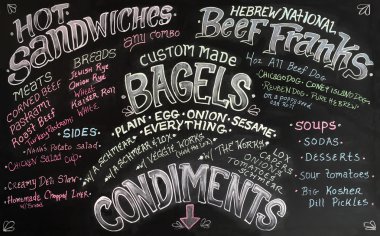 HOT
SANDWICHES
ANY COMBO
MEATS
CORNED BEEF
PASTRAMI
ROAST BEEF
TURKEY PASTRAMI
BREADS
JEWISH RYE
SWIRL RYE
WHEAT
KAISER ROLL
WHITE
SIDES:
NANA'S POTATO SALAD
CHICKEN SALAD CUP
CREAMY DELI SLAW
HOMEMADE CHOPPED LIVER
W/ BREAD
CUSTOM MADE
BAGELS
PLAIN · EGG · ONION · SESAME ·
EVERYTHING
W/ A SCHMEAR
W/ A SCHMEAR & LOX
W/ VEGGIE WORKS
W/ "THE WORKS"
LOX
CAPERS
TOMATOES
SCHMEAR
CONDIMENTS
HEBREW NATIONAL
BEEF FRANKS
4OZ ALL BEEF DOG
CHICAGO DOG · CONEY ISLAND DOG
REUBEN DOG · PURE HEBREW
ON A POPPYSEED
BUN
SOUPS
SODAS
DESSERTS
SOUR TOMATOES
BIG KOSHER
DILL PICKLES